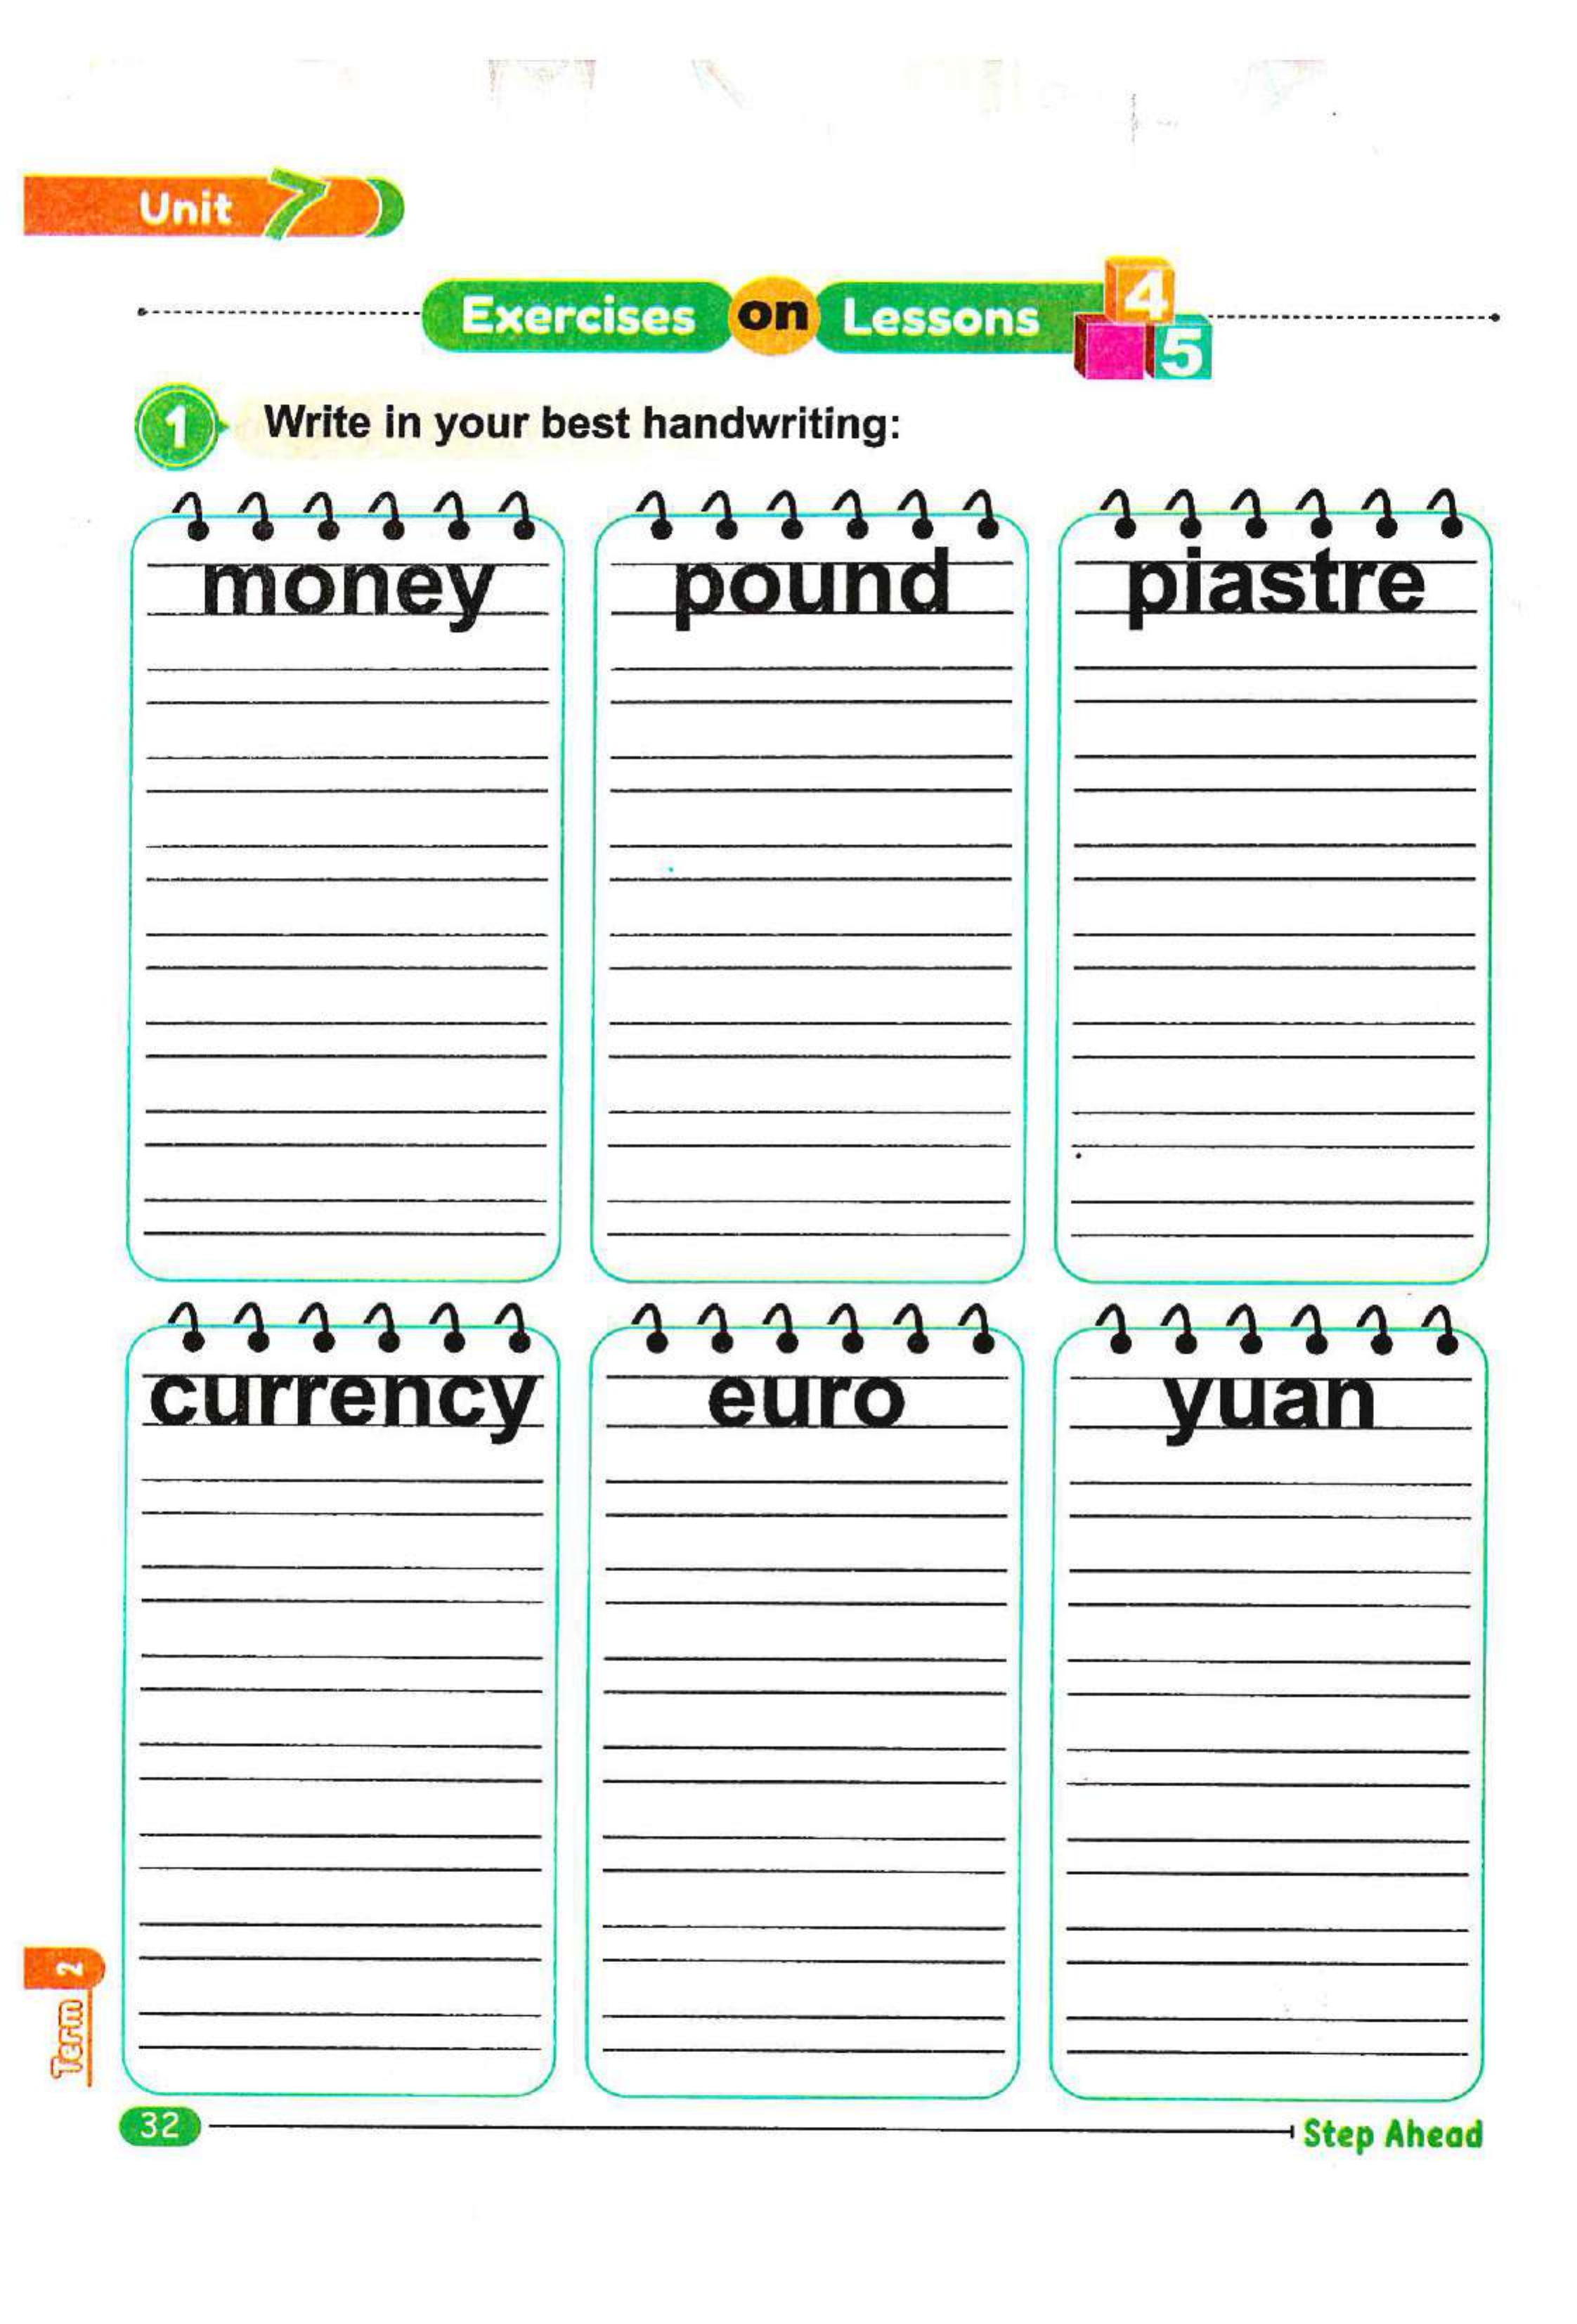 Unit 7
Exercises on Lessons 4 5
1 Write in your best handwriting:
money pound piastre
currency euro yuan
Term 2
32 Step Ahead